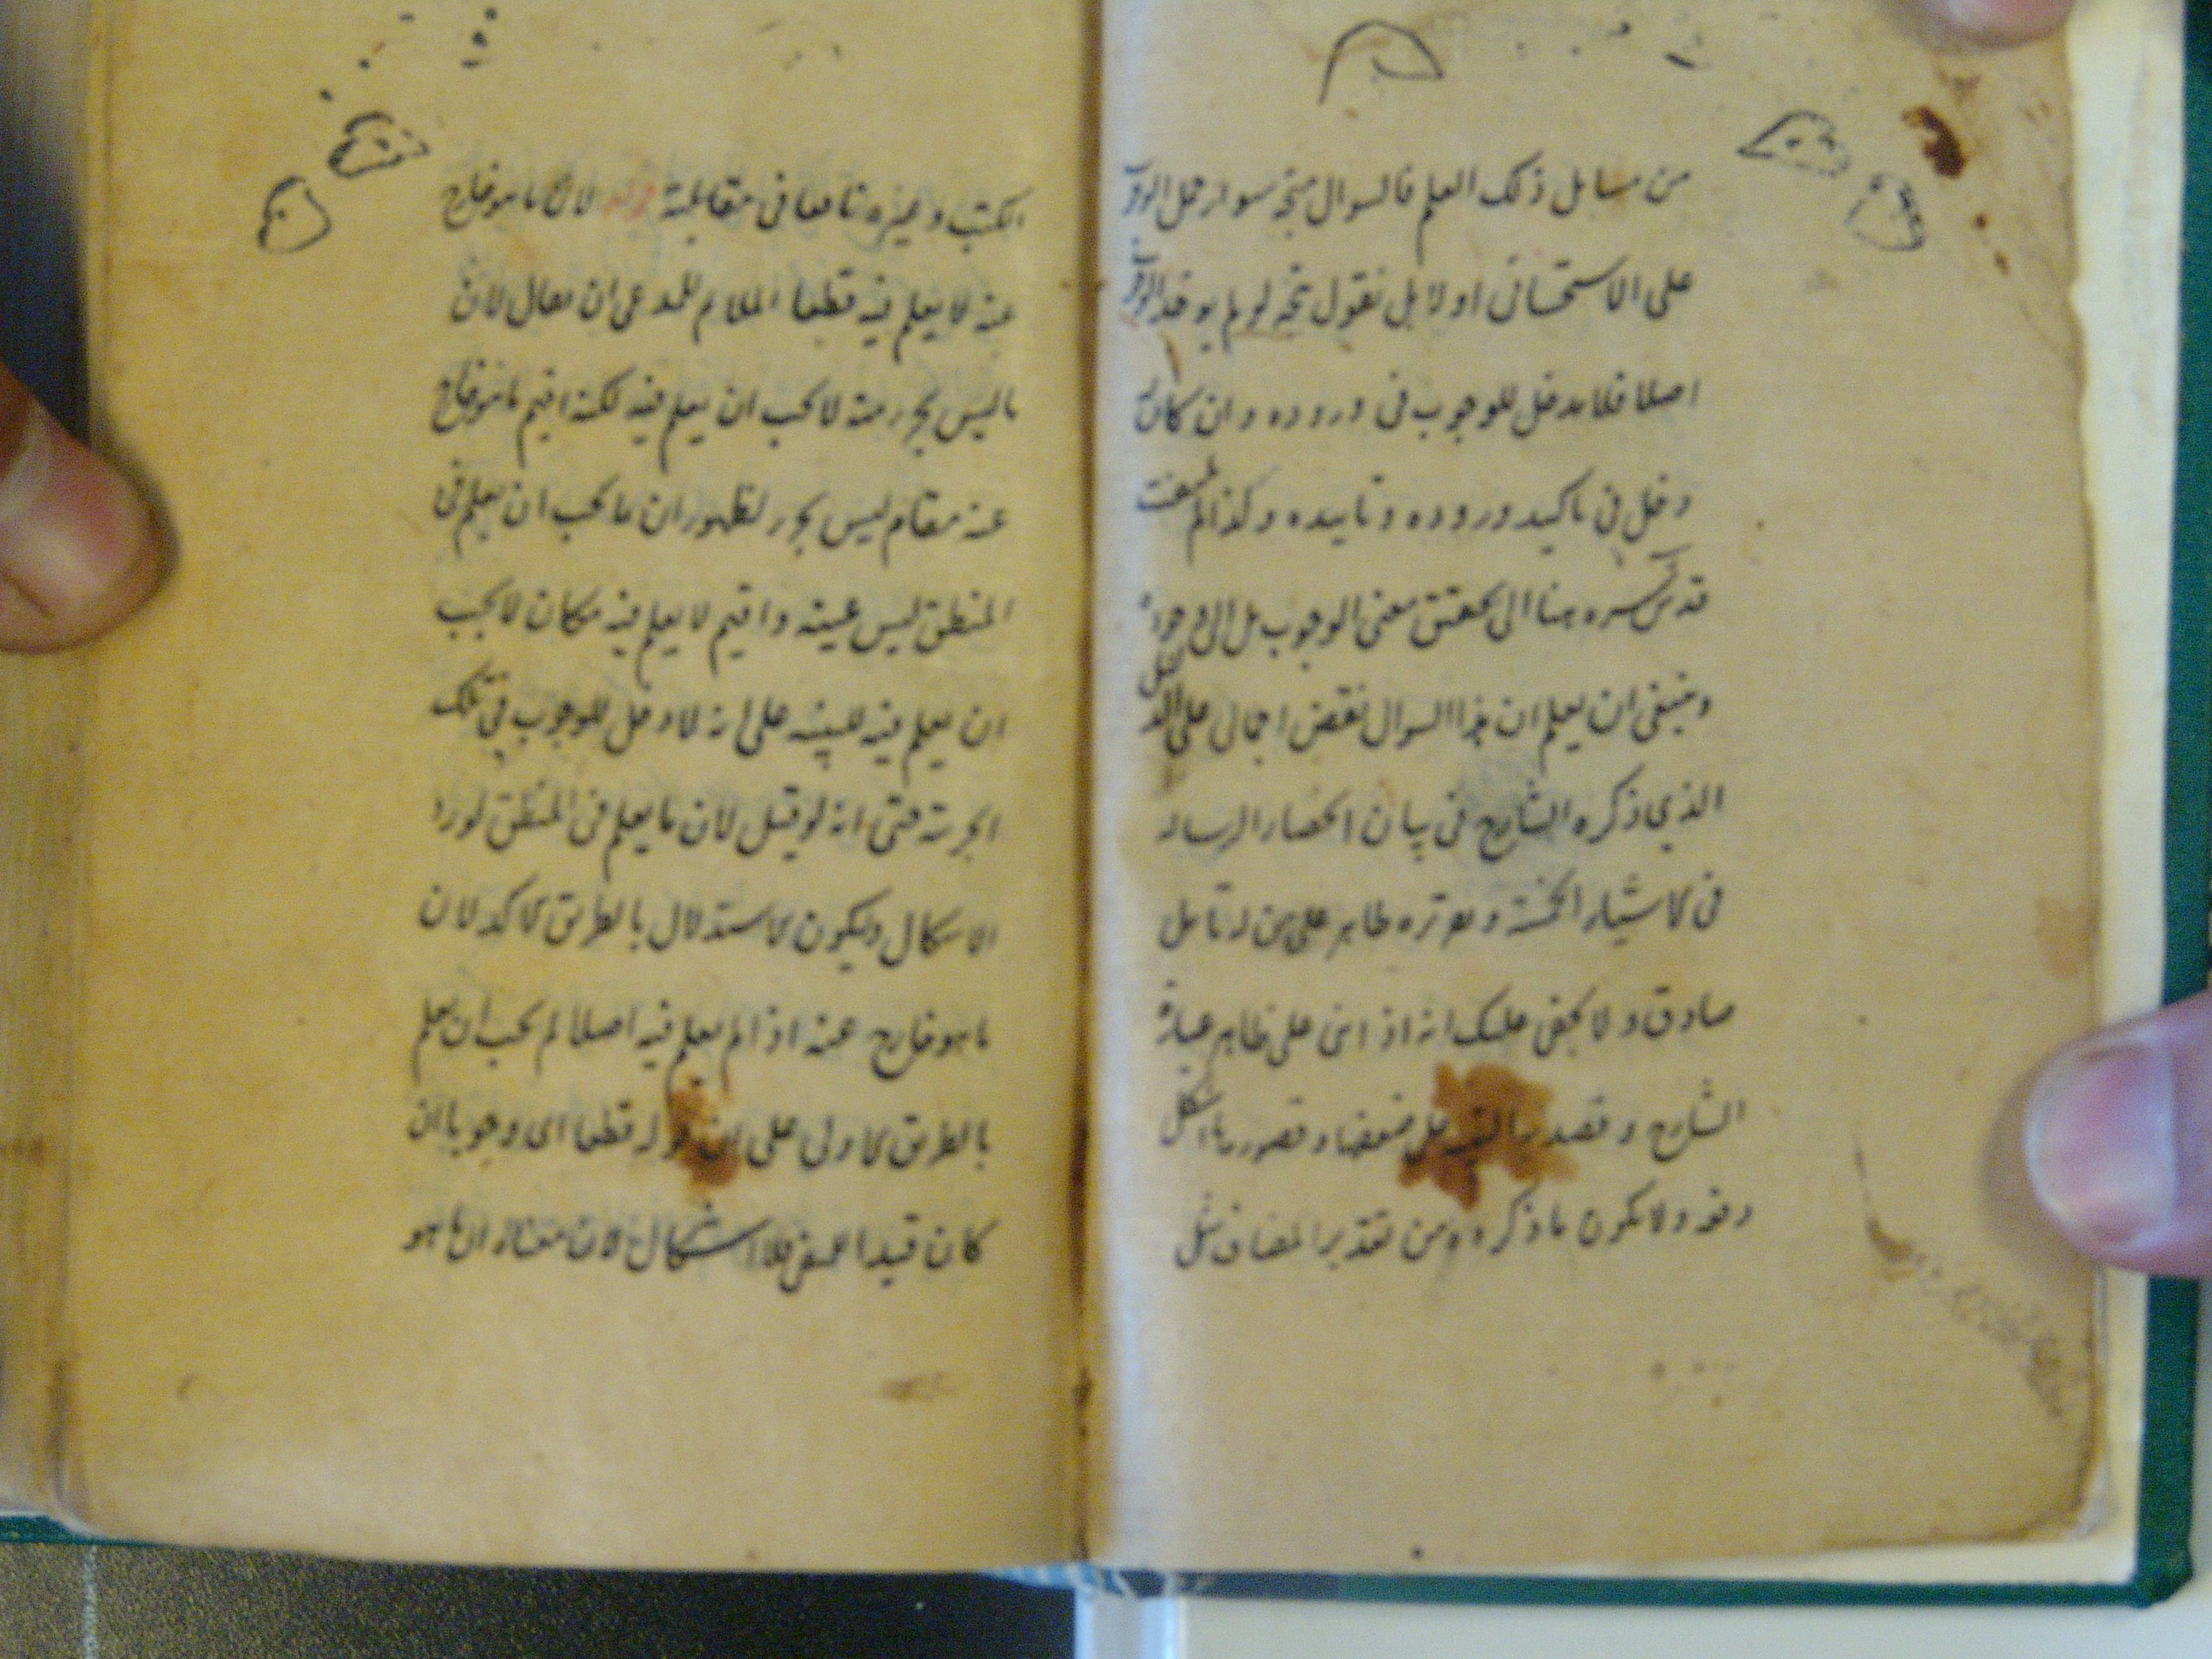 من مسايل ذلك العلم فالسوال متجه سواء حمل الوجوب
على الاستحساني اولا بل نقول متجه لو لم يوخذ الوجوب
اصلا فلا مدخل للوجوب في وروده وان كان له
دخل في تاكيد وروده وتاييده وكذا لم يلتفت
قدس سره هنا الى تحقيق معنى الوجوب بل الى
وينبغي ان يعلم ان هذا السوال نقض اجمالي على الدليل
الذي ذكره الشارح في بيان انحصار الرساله
في الاشياء الخمسة و ظاهر على من له تامل
صادق ولا يخفى عليك انه اذا على ظاهر عبارة
الشارح وقصد على ضعفها وقصورها اشكل
دفعه ولا يكون ما ذكره من تقدير المضاف مثل
الكتب وغيره نافعا في مقابلته قوله لان ما هو خارج
عنه لا يعلم فيه قطعا الملايم للمدعى ان يقال لان
ما ليس بجزء منه لا يجب ان يعلم فيه لكنه اقيم ما هو خارج
عنه مقام ليس بجزء لظهور ان ما يجب ان يعلم في
المنطق ليس عينه واقيم لا يعلم فيه مكان لا يجب
ان يعلم فيه للتنبيه على انه لا دخل للوجوب في تلك
الجزئية حتى انه لو قيل لان ما يعلم في المنطق لورد
الاشكال وليكون الاستدلال بالطريق الاكد لان
ما هو خارج عنه اذا لم يعلم فيه اصلا لم يجب ان يعلم
بالطريق الاولى على ان قوله قطعا اى وجوبا ان
كان قيدا للمنفي فلا اشكال لان معناه ان ما هو